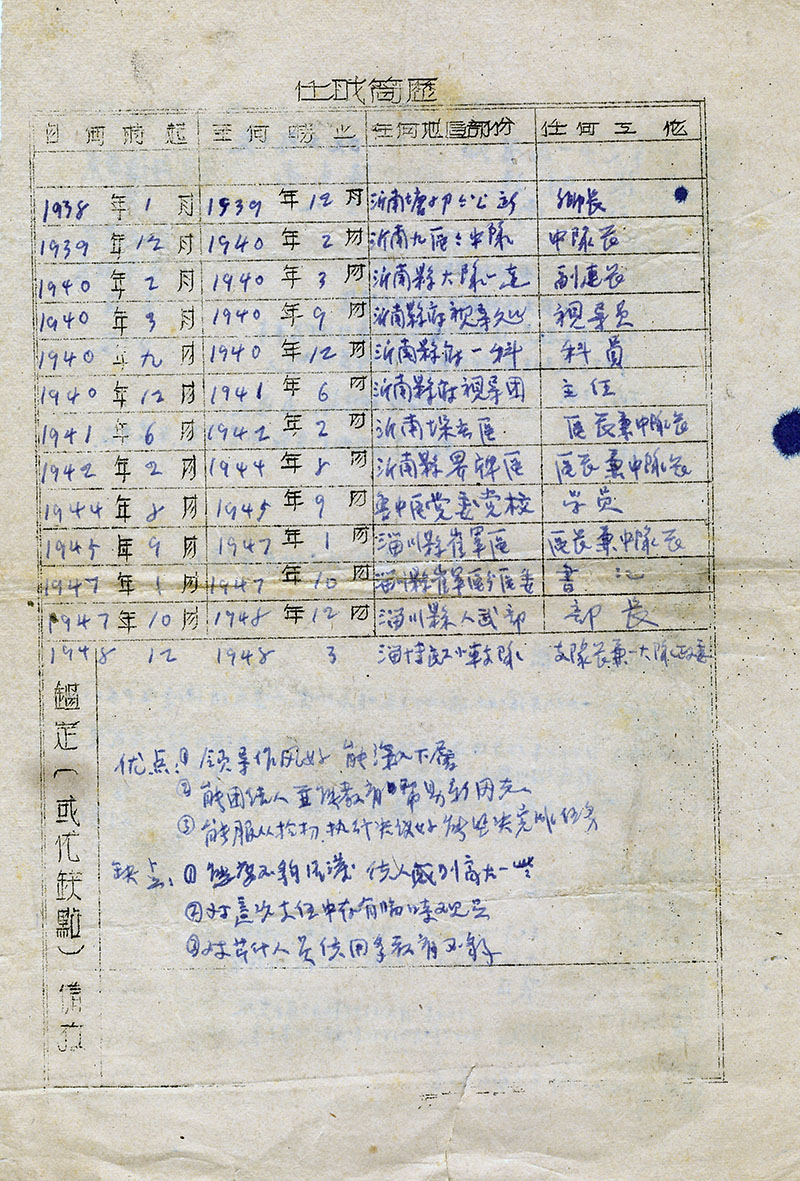 任职简歷
自何時起 至何時止 在何地區部份 任何工作
1938年1月 1939年12月 沂南 鄉长
1939年12月 1940年2月 沂南九區 中隊長
1940年2月 1940年3月 沂南縣大隊一連 副連長
1940年3月 1940年9月 沂南縣府視導 視导员
1940年九月 1940年12月 沂南縣府一科 科員
1940年12月 1941年6月 沂南縣府視导团 主任
1941年6月 1942年2月 沂南 區 區長兼中隊長
1942年2月 1944年8月 沂南縣界牌區 區長兼中隊長
1944年8月 1945年9月 魯中區党委党校 学员
1945年9月 1947年1月 淄川縣崔軍區 區長兼中隊長
1947年1月 1947年10月 淄川縣崔軍區委 書记
1947年10月 1948年12月 淄川縣人武部 部長
1948 12 1948 3 淄博民工小車支隊 支隊長兼一大隊政委
鑑定(或优缺點)備攷
优点:① 领导作风好 能深入下層
② 能团结人
③ 能服从 执行决议好 坚决完成任务
缺点:① 够 使人感到 大一些
② 对 主任中存有临時观点
③ 对 人员使用多教育不够